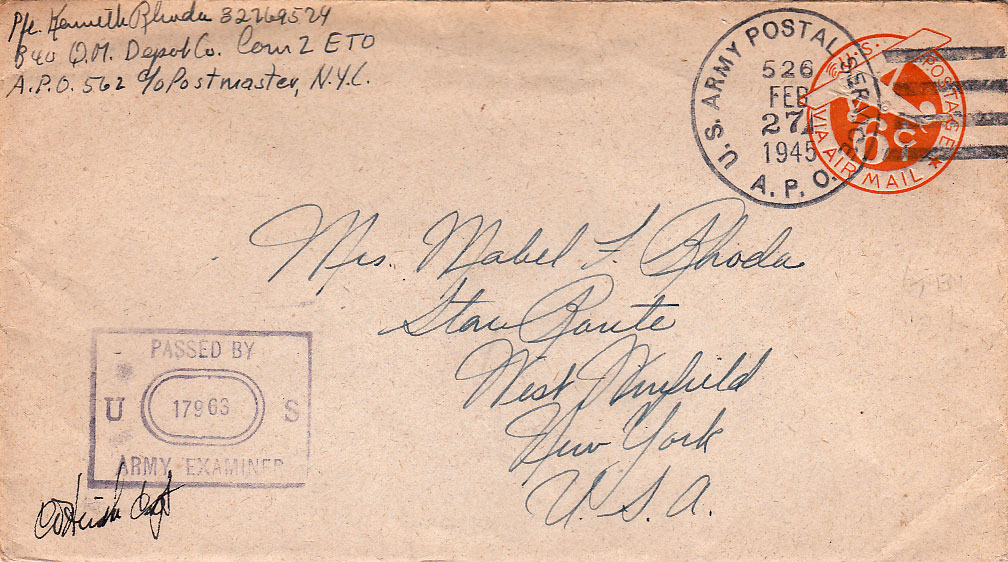 Pfc. Kenneth Rhoda 32769524
B 40 Q.M. Depot Co. Com Z ETO
A.P.O. 562 c/o Postmaster, N.Y.C.
U.S. ARMY POSTAL SERVICE
526
FEB
27
1945
A.P.O.
U.S. POSTAGE
6c
VIA AIR MAIL
Mrs. Mabel F. Rhoda
Star Route
West Winfield
New York
U.S.A.
PASSED BY
U 17963 S
ARMY EXAMINER
Capt